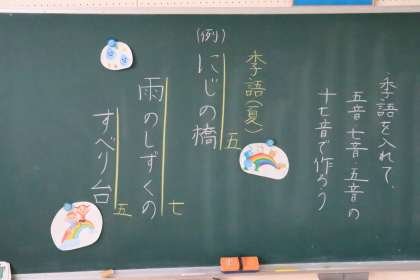 季語を入れて、
五音・七音・五音の
十七音で作ろう
季語(夏)
(例)
にじの橋
五
雨のしずくの
七
すべり台
五